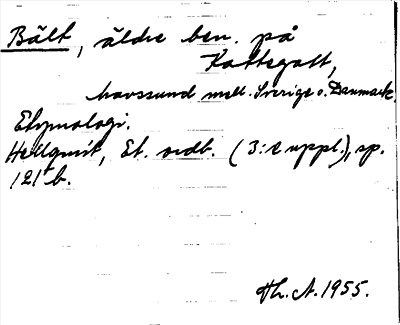 Bält, äldre ben. på
Kattegatt,
havssund mell. Sverige o. Danmark.
Etymologi.
Hellquist, Et. ordb. (3:e uppl.), sp.
121 b.
Th. A. 1955.